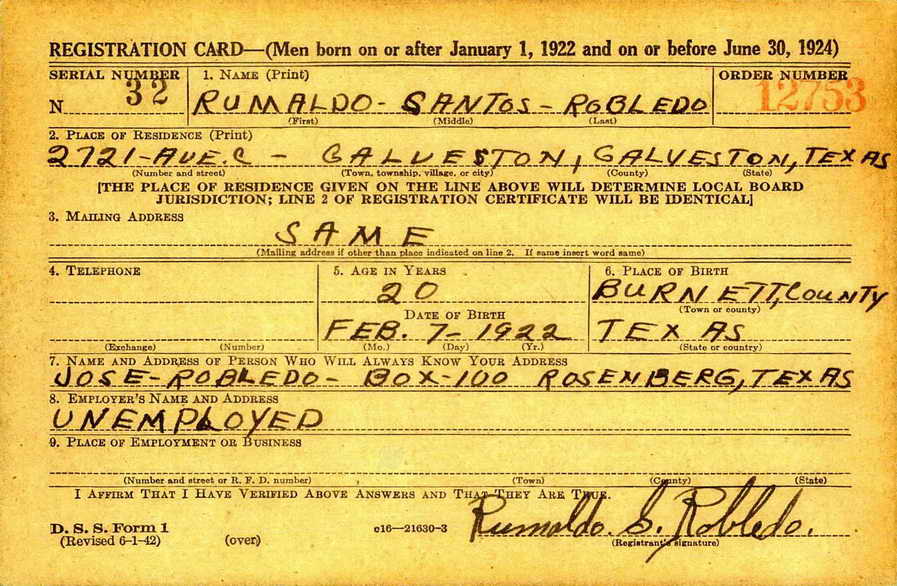 REGISTRATION CARD—(Men born on or after January 1, 1922 and on or before June 30, 1924)
SERIAL NUMBER 1. NAME (Print) ORDER NUMBER
N 32 RUMALDO - SANTOS - ROBLEDO 12753
(First) (Middle) (Last)
2. PLACE OF RESIDENCE (Print)
2721-AVE.C - GALVESTON, GALVESTON, TEXAS
(Number and street) (Town, township, village, or city) (County) (State)
[THE PLACE OF RESIDENCE GIVEN ON THE LINE ABOVE WILL DETERMINE LOCAL BOARD
JURISDICTION; LINE 2 OF REGISTRATION CERTIFICATE WILL BE IDENTICAL]
3. MAILING ADDRESS
SAME
(Mailing address if other than place indicated on line 2. If same insert word same)
4. TELEPHONE 5. AGE IN YEARS 6. PLACE OF BIRTH
20 BURNETT, COUNTY
DATE OF BIRTH (Town or county)
FEB. 7- 1922 TEXAS
(Exchange) (Number) (Mo.) (Day) (Yr.) (State or country)
7. NAME AND ADDRESS OF PERSON WHO WILL ALWAYS KNOW YOUR ADDRESS
JOSE-ROBLEDO- BOX-100 ROSENBERG, TEXAS
8. EMPLOYER'S NAME AND ADDRESS
UNEMPLOYED
9. PLACE OF EMPLOYMENT OR BUSINESS
(Number and street or R. F. D. number) (Town) (County) (State)
I AFFIRM THAT I HAVE VERIFIED ABOVE ANSWERS AND THAT THEY ARE TRUE.
D. S. S. Form 1 c16—21630-3 Rumaldo. S. Robledo.
(Revised 6-1-42) (over) (Registrant's signature)